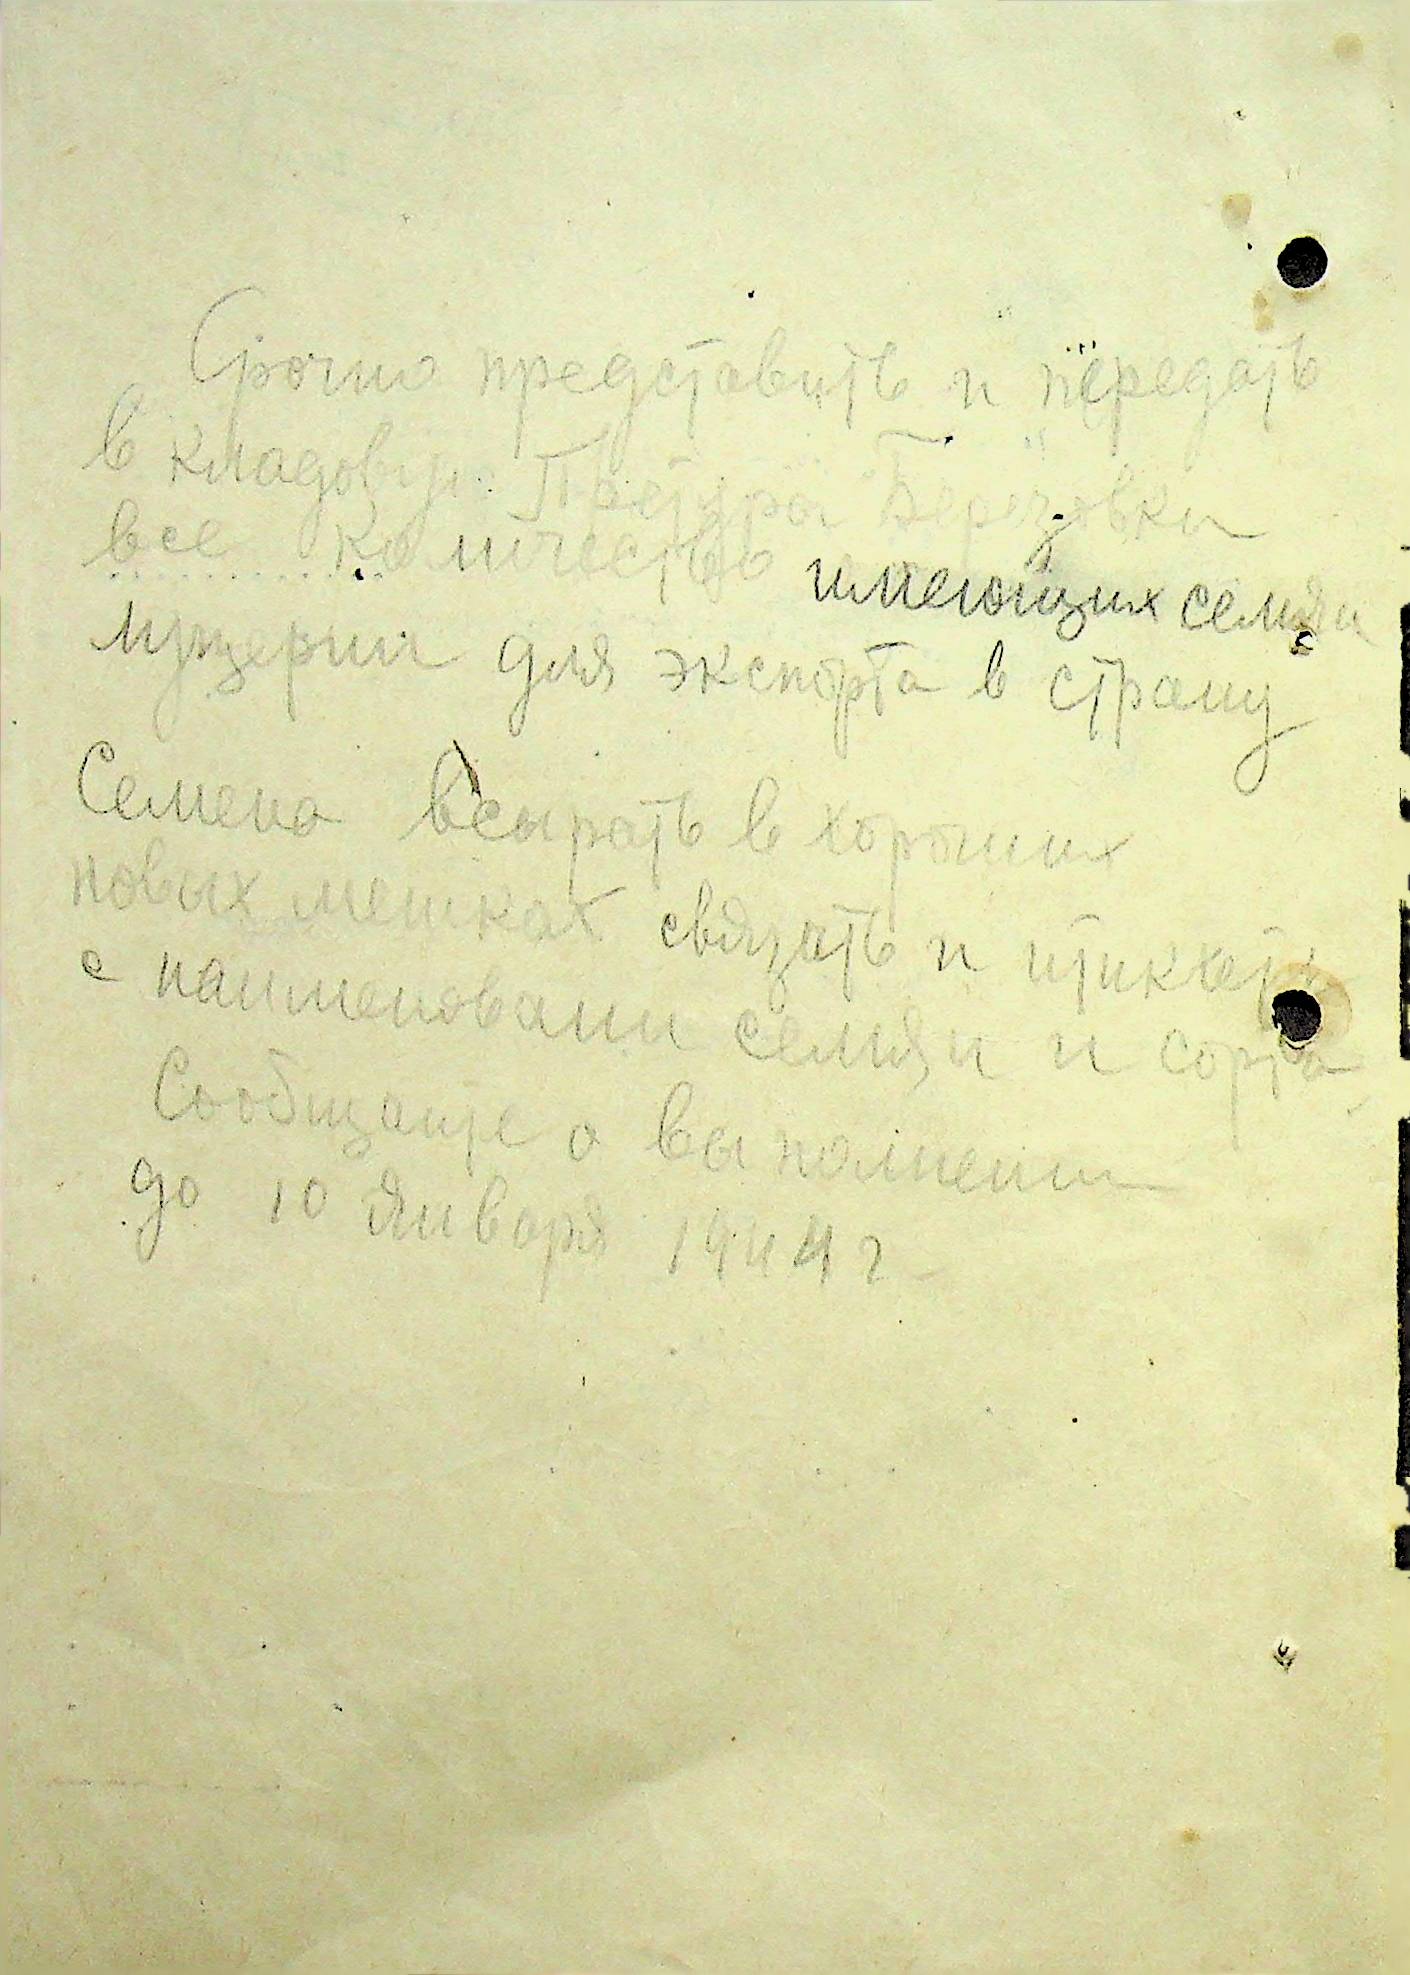 Срочно представить и передать
в кладовую Претура Березовки
все количество имеющих семян
люцерни для экспорта в страну
Семена всырать в хороших
новых мешках связать и
с наименовани семян и сорта
Сообщайте о выполнении
до 10 января 1944 г